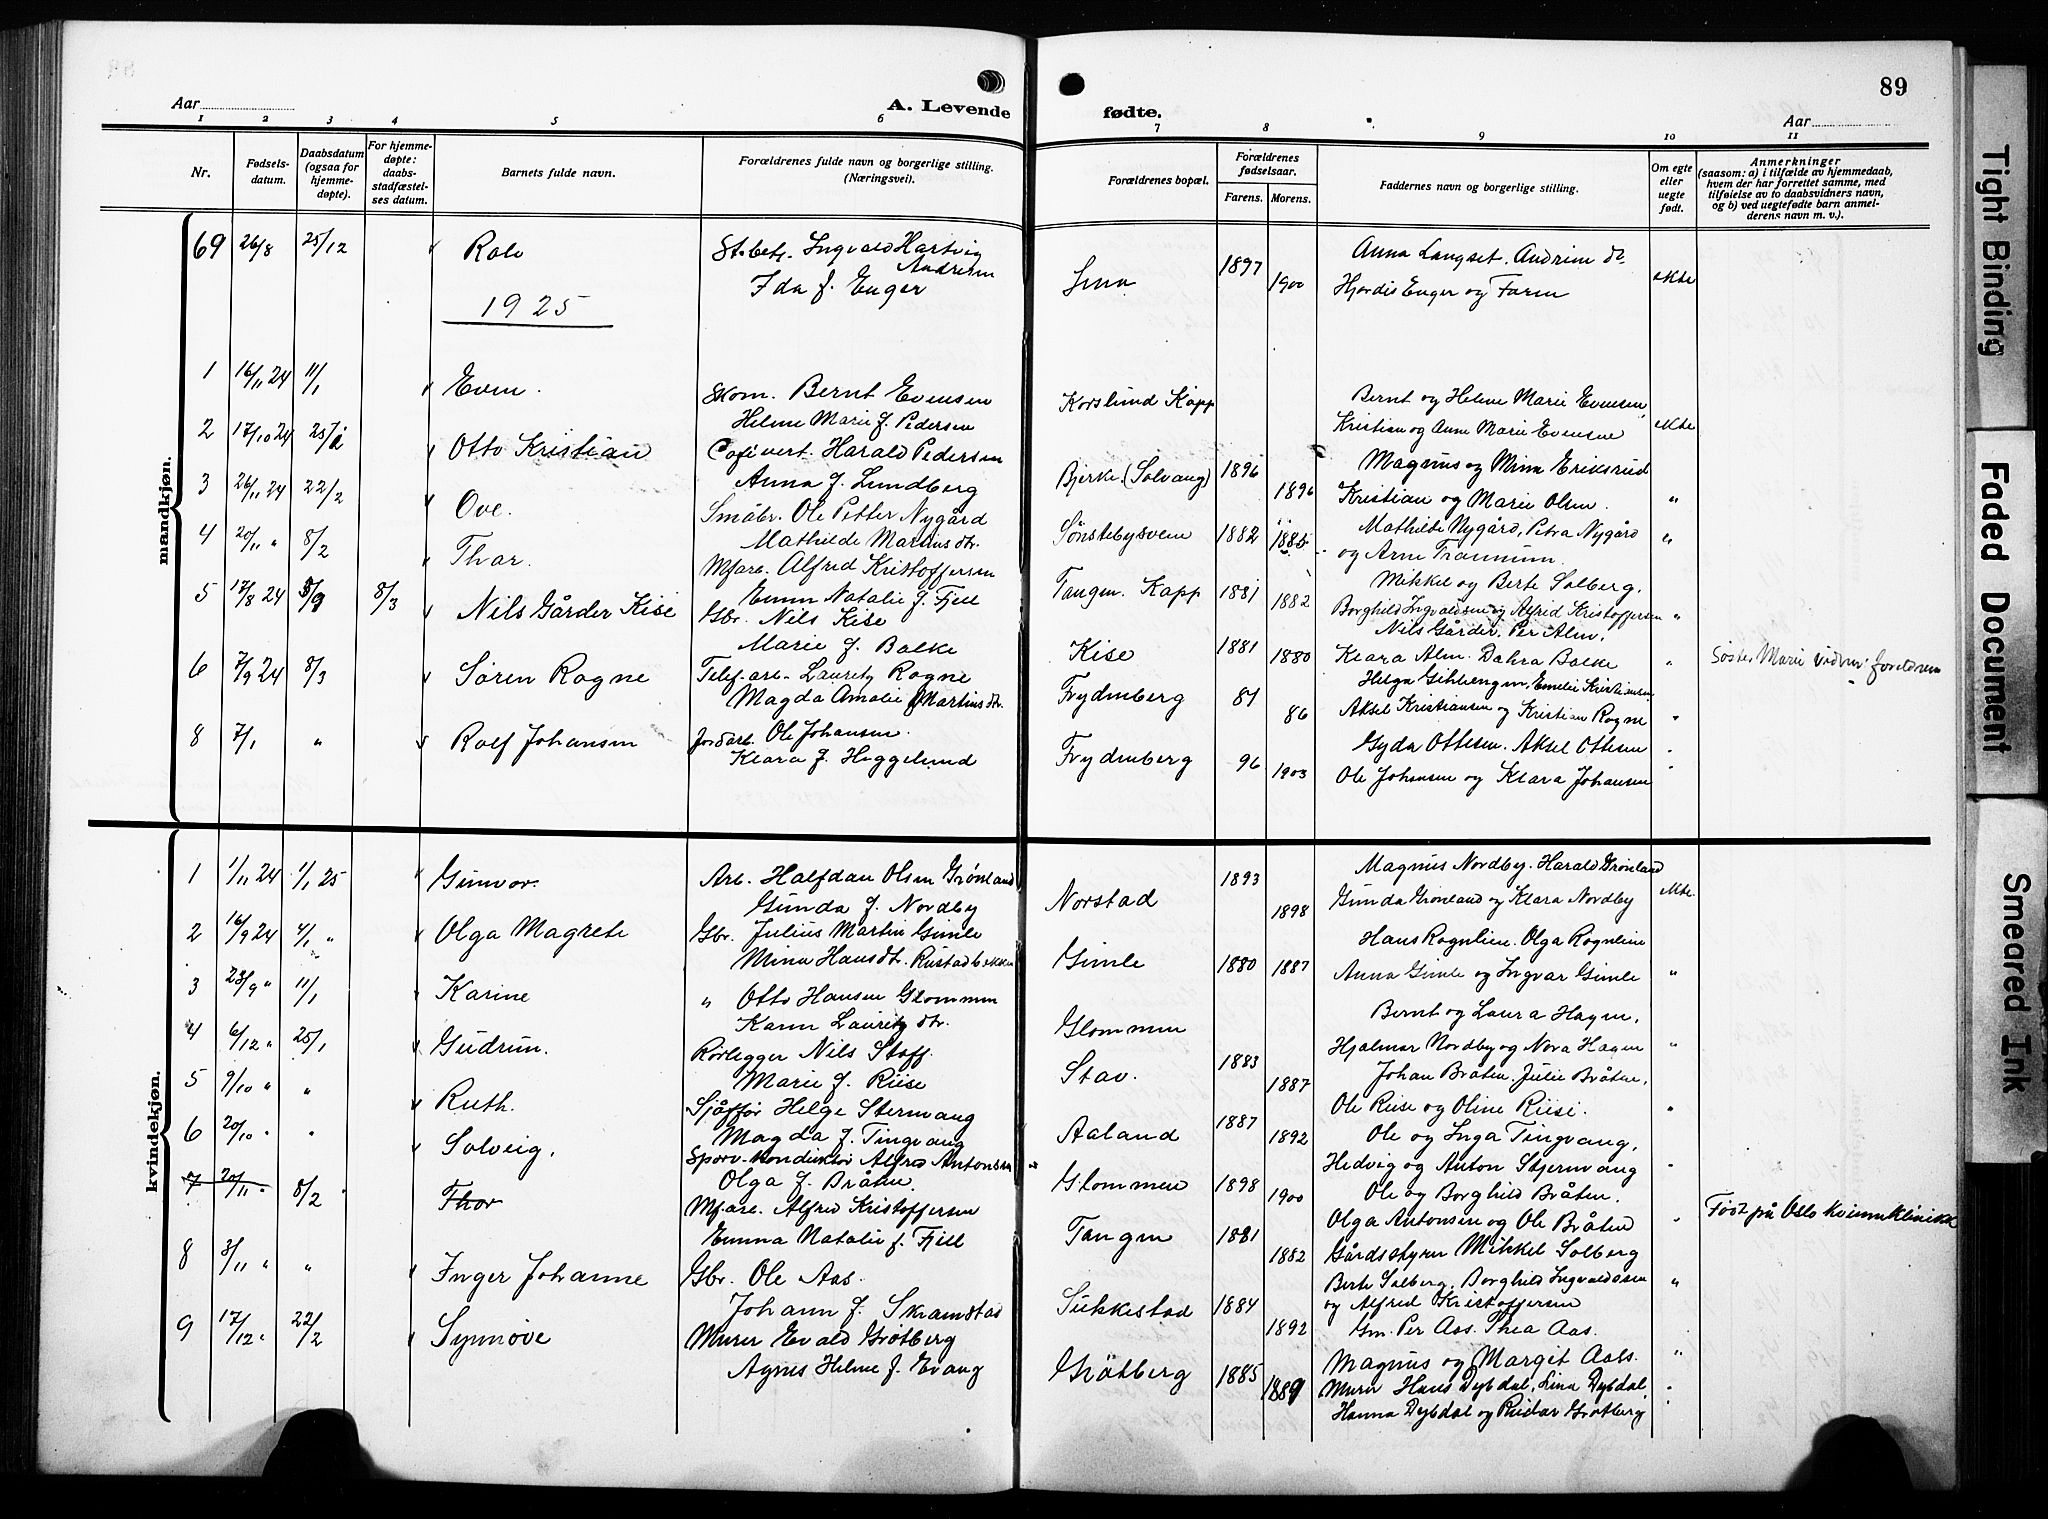 89
Aar
A. Levende
fødte.
Aar
1 2 3 4 5 6 7 8 9 10 11
Nr.
Fødsels-
datum.
Daabsdatum
(ogsaa for
hjemme-
døpte).
For hjemme-
døpte:
daabs-
stadfæstel-
ses datum.
Barnets fulde navn.
Forældrenes fulde navn og borgerlige stilling.
(Næringsvei).
Forældrenes bopæl.
Forældrenes
fødselsaar.
Farens. Morens.
Faddernes navn og borgerlige stilling.
Om egte
eller
uegte
født.
Anmerkninger
(saasom: a) i tilfælde av hjemmedaab,
hvem der har forrettet samme, med
tilføielse av to daabsvidners navn,
og b) ved uegtefødte barn anmel-
derens navn m. v.).
mandkjøn.
69 26/8 25/12 St.betj. Ingvald Hartvig
Ida f. Enger 1897 1900 Anna Langset. 
Hjordis Enger og Faren ekte
1925
1 16/11 24 11/1 Even. Skom. Bernt Evensen
Helene Marie f. Pedersen Korslund Kapp Bernt og Helene Marie Evensen,
Kristian og Anne Marie Evensen ekte
2 17/10 24 25/1 Otto Kristian Cafévert. Harald Pedersen
Anna f. Lundberg Bjerke (Solvang) 1896 1896 Magnus og Mina Eriksrud
Kristian og Marie Olsen. "
3 26/11 24 22/2 Ove. Småbr. Ole Petter Nygård
Mathilde Martinsdtr. Sønstebysveen 1882 1885 Mathilde Nygård, Petra Nygård
og Arne Tranum. "
4 20/11 " 8/2 Thor. Mfarb. Alfred Kristoffersen
Emma Natalie f. Fjell Tangen. Kapp 1881 1882 Mikkel og Berte Solberg,
Borghild Ingvaldsen og Alfred Kristoffersen "
5 17/8 24 8/9 8/3 Nils Gårder Kise Gbr. Nils Kise
Marie f. Balke Kise 1881 1880 Nils Gårder, Per Alm,
Klara Alm. Dahra Balke " Søster Marie foreldrene
6 7/9 24 8/3 Søren Rogne Telef.arb. Lauritz Rogne
Magda Amalie Martinsdtr. Frydenberg 81 86 Helga Gihlengen, Emelie Kristiansen
Aksel Kristiansen og Kristian Rogne "
8 7/1 " Rolf Johansen Jordarb. Ole Johansen.
Klara f. Heggelund Frydenberg 96 1903 Gyda Ottesen. Aksel Ottesen
Ole Johansen og Klara Johansen "
kvindekjøn.
1 1/11 24 1/1 25 Gunvor. Arb. Halfdan Olsen Grønland
Gunda f. Nordby Norstad 1893 1898 Magnus Nordby. Harald Grønland
Gunda Grønland og Klara Nordby ekte.
2 16/9 24 4/1 " Olga Magrete Gbr. Julius Martin Gimle
Mina Hansdtr. Rustadbakken Gimle 1880 1887 Hans Rognlien. Olga Rognlien
Anna Gimle og Ingvar Gimle "
3 23/9 " 11/1 Karine " Otto Hansen Glommen
Karen Lauritzdtr. Glommen Bernt og Laura Hagen,
Hjalmar Nordby og Nora Hagen "
4 6/12 " 25/1 Gudrun. Rørlegger Nils Staff.
Marie f. Riise Stav. 1883 1887 Johan Bråten. Julie Bråten,
Ole Riise og Oline Riise. "
5 9/10 " " Ruth. Sjåffør Helge Stermvang
Magda f. Tingvang Aaland 1887 1892 Ole og Inga Tingvang,
Hedvig og Anton Stjernvang "
6 20/10 " " Solveig, Sporv.konduktør Alfred Antonsen
Olga f. Bråten. Glommen 1898 1900 Ole og Borghild Bråten.
Olga Antonsen og Ole Bråten " Født på Oslo kvinneklinikk
7 20/11 " 8/2 Thor Mfarb. Alfred Kristoffersen
Emma Natalie f. Fjell Tangen 1881 1882 Gårdsstyrer Mikkel Solberg
Berte Solberg, Borghild Ingvaldsen
og Alfred Kristoffersen "
8 3/11 " " Inger Johanne Gbr. Ole Aas.
Johanne f. Skramstad Sukkestad 1884 1892 Gm. Per Aas. Thea Aas.
Magnus og Margit Aas. "
9 17/12 " 22/2 Synnøve Murer Evald Grøtberg
Agnes Helene f. Evang Grøtberg 1885 1889 Murer Hans Dybdal, Lina Dybdal,
Hanna Dybdal og Reidar Grøtberg "
Tight Binding
Faded Document
Smeared Ink